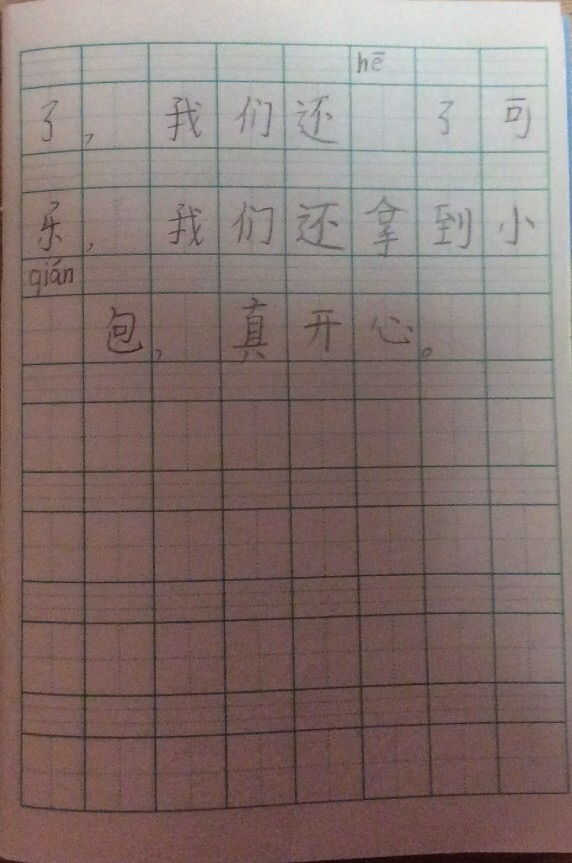 hē
了，我们还 了可
乐，我们还拿到小
qián
包，真开心。